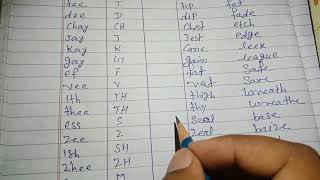 tee T tip fat
dee D dip fade
Chay CH Chest etch
Jay J Jest edge
Kay K Came leek
gay G gain league
ef F fat Safe
vee V vat Save
ith TH thigh wreath
thee TH thy wreathe
ess S Seal base
zee Z Zeal baize
ish SH
zhee ZH
M